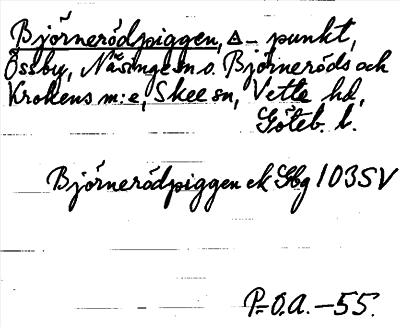 Björnerödpiggen, △-punkt,
Össby, Näsinge sn o. Björneröds och
Krokens m:e, Skee sn, Vette hd,
Göteb. l.
Björnerödpiggen ek Gbg 103SV
P.-O.A. -55.